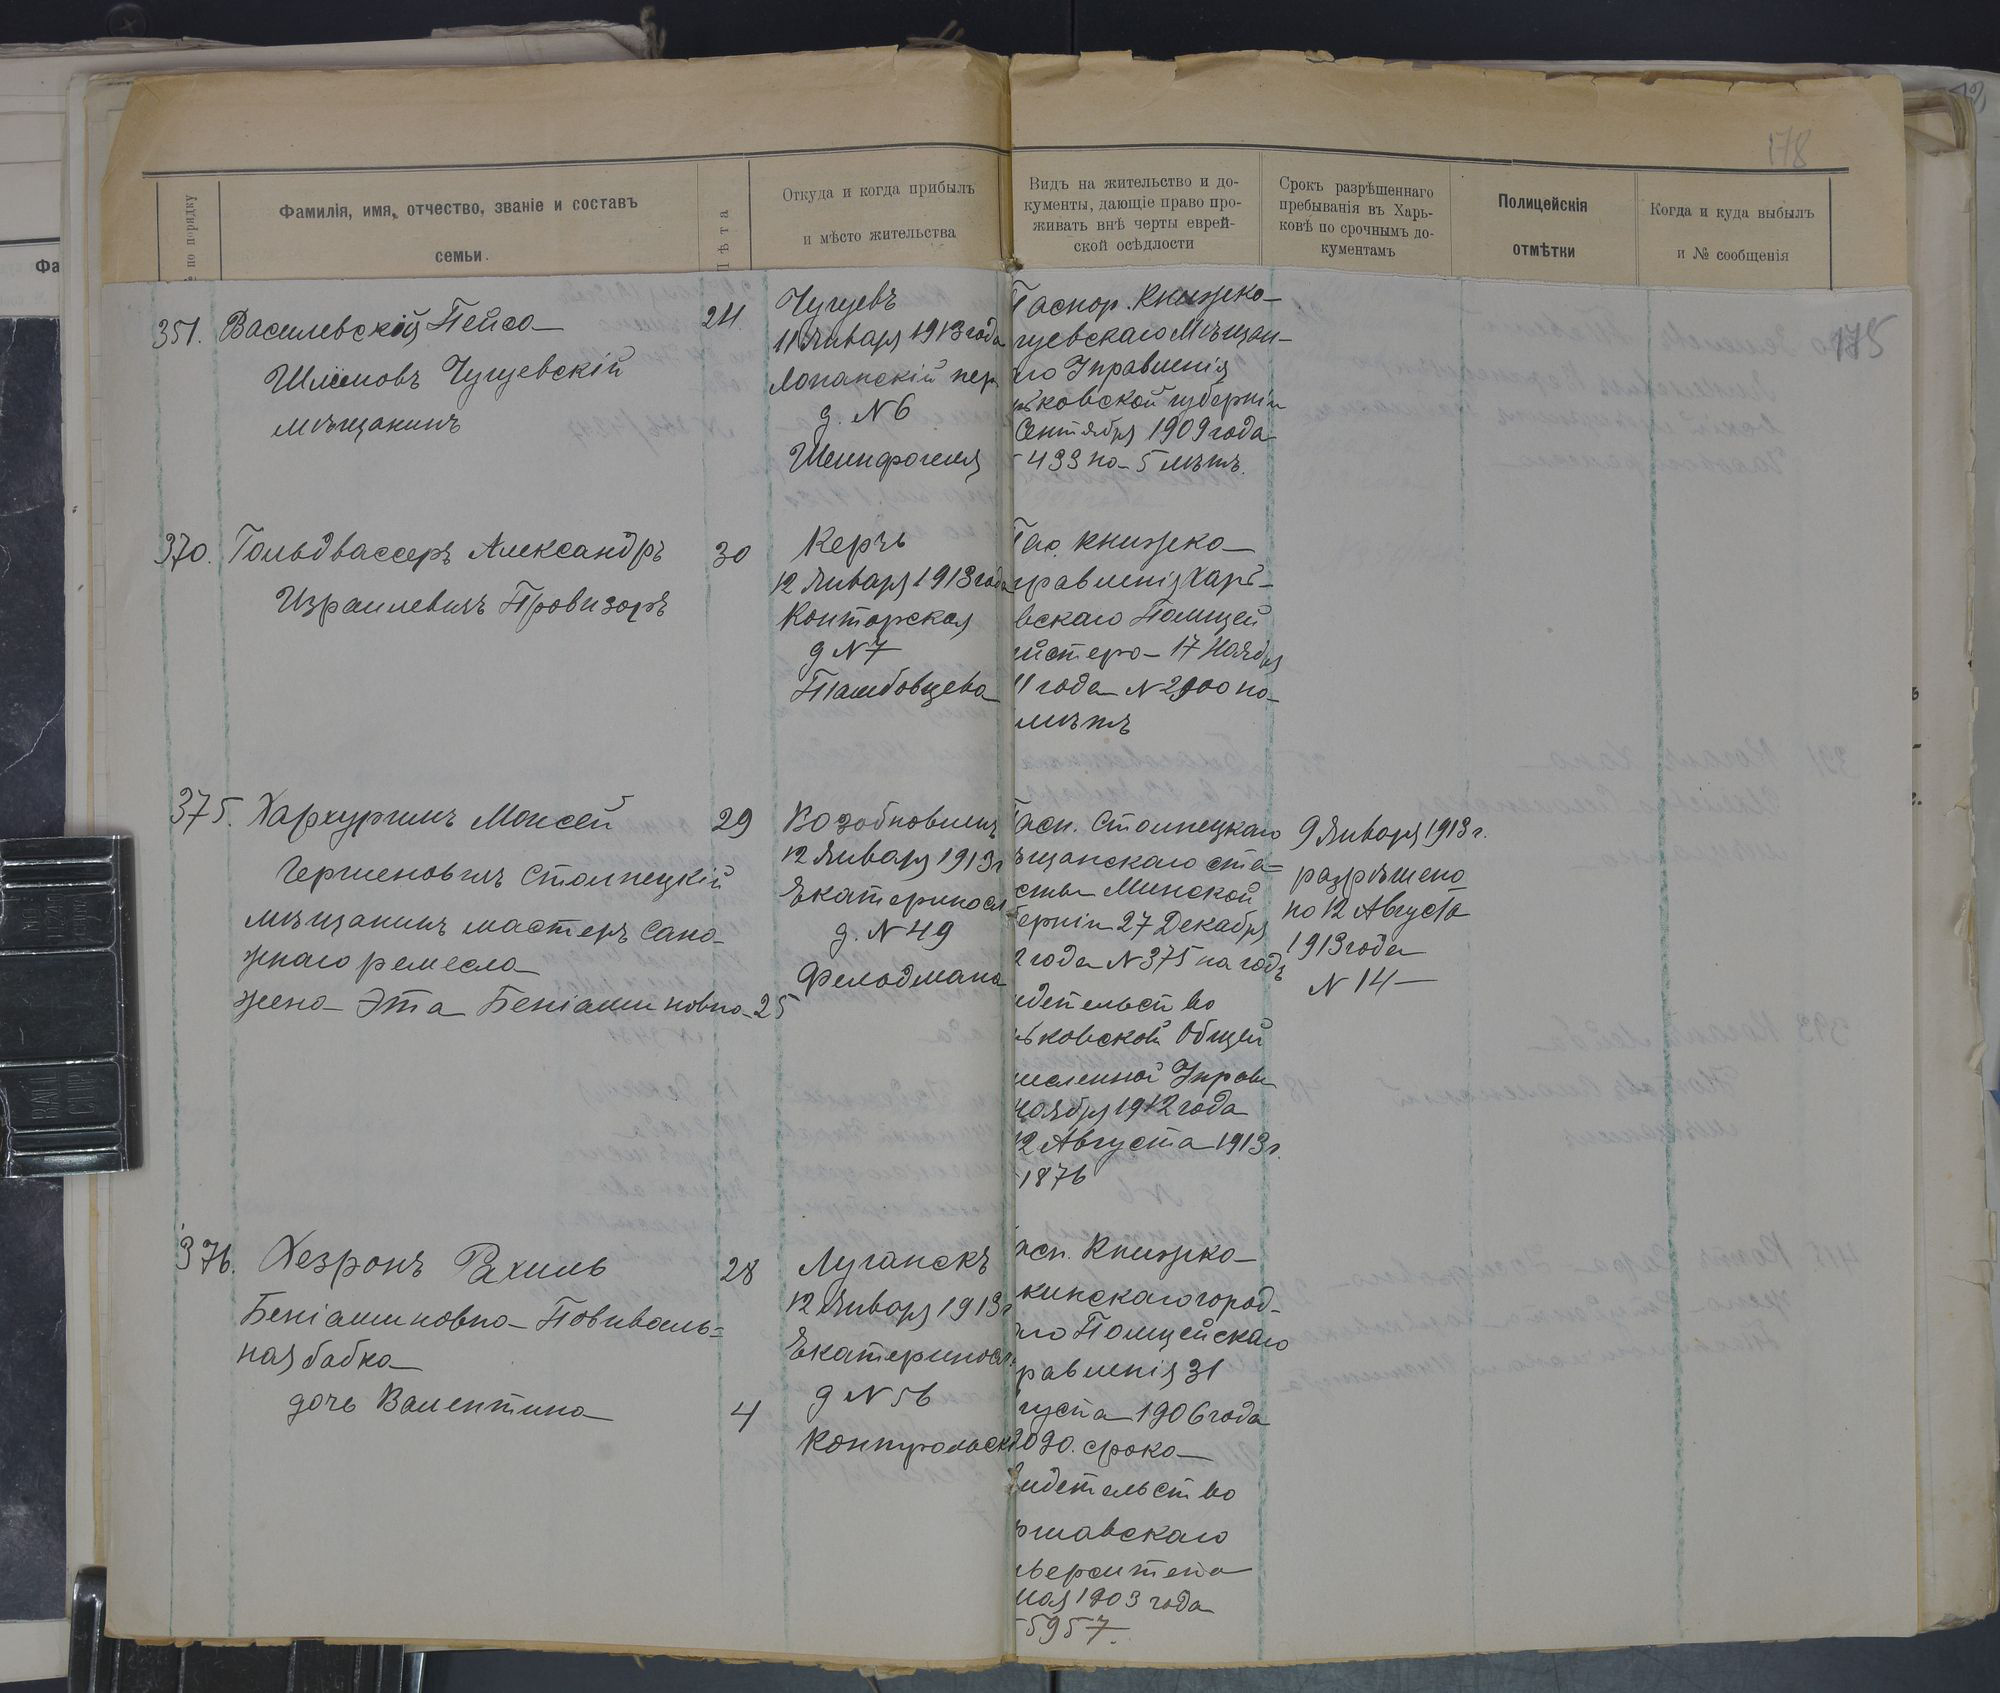 178
№ по порядку
Фамилія, имя, отчество, званіе и составъ
семьи.
Лѣта
Откуда и когда прибылъ
и мѣсто жительства
Видъ на жительство и до-
кументы, дающіе право про-
живать внѣ черты еврей-
ской осѣдлости
Срокъ разрѣшеннаго
пребыванія въ Харь-
ковѣ по срочнымъ до-
кументамъ
Полицейскія
отмѣтки
Когда и куда выбылъ
и № сообщенія
175
351. Василевскій Пейса
Шлемовъ Чугуевскій
мѣщанинъ
24
Чугуевъ
11 Января 1913 года
Лопанскій пер.
д. N 6
Паспор. Книжка
гуевскаго Мѣщан-
аго Управленія
рьковской губерніи
Сентября 1909 года
433 на 5 лѣтъ.
370. Гольдвассеръ Александръ
Израилевичъ Провизоръ
30
Керчь
12 Января 1913 года
Конторская
д N 7
Тамбовцева
Пас. книжка
правленія Харь-
вскаго Полицей
йстера 17 Ноября
11 года N 2900 на
лѣтъ
375. Хархуринъ Моисей
Гершеновичъ Столпецкій
мѣщанинъ мастеръ сапо-
жнаго ремесла
жена Эта Беніаминовна 25
29
Возобновилъ
12 Января 1913 г
Екатериносл
д. N 49
Фельдмана
Пасп. Столпецкаго
ѣщанскаго ста=
ства Минской
берніи 27 Декабря
2 года N 375 на годъ
идетельство
ьковской Общей
месленной Управы
Ноября 1912 года
12 Августа 1913 г.
1876
9 Января 1913 г.
разрѣшено
по 12 Августа
1913 года
N 14
376. Хезронъ Рахиль
Беніаминовна Повиваль=
ная бабка
дочь Валентина
28
4
Луганскъ
12 Января 1913 г
Екатериносл.
д N 56
асп. Книжка
кинскаго город-
аго Полицейскаго
равленія 31
густа 1906 года
срока
видетельство
ршавскаго
иверситета
мая 1903 года
5957.